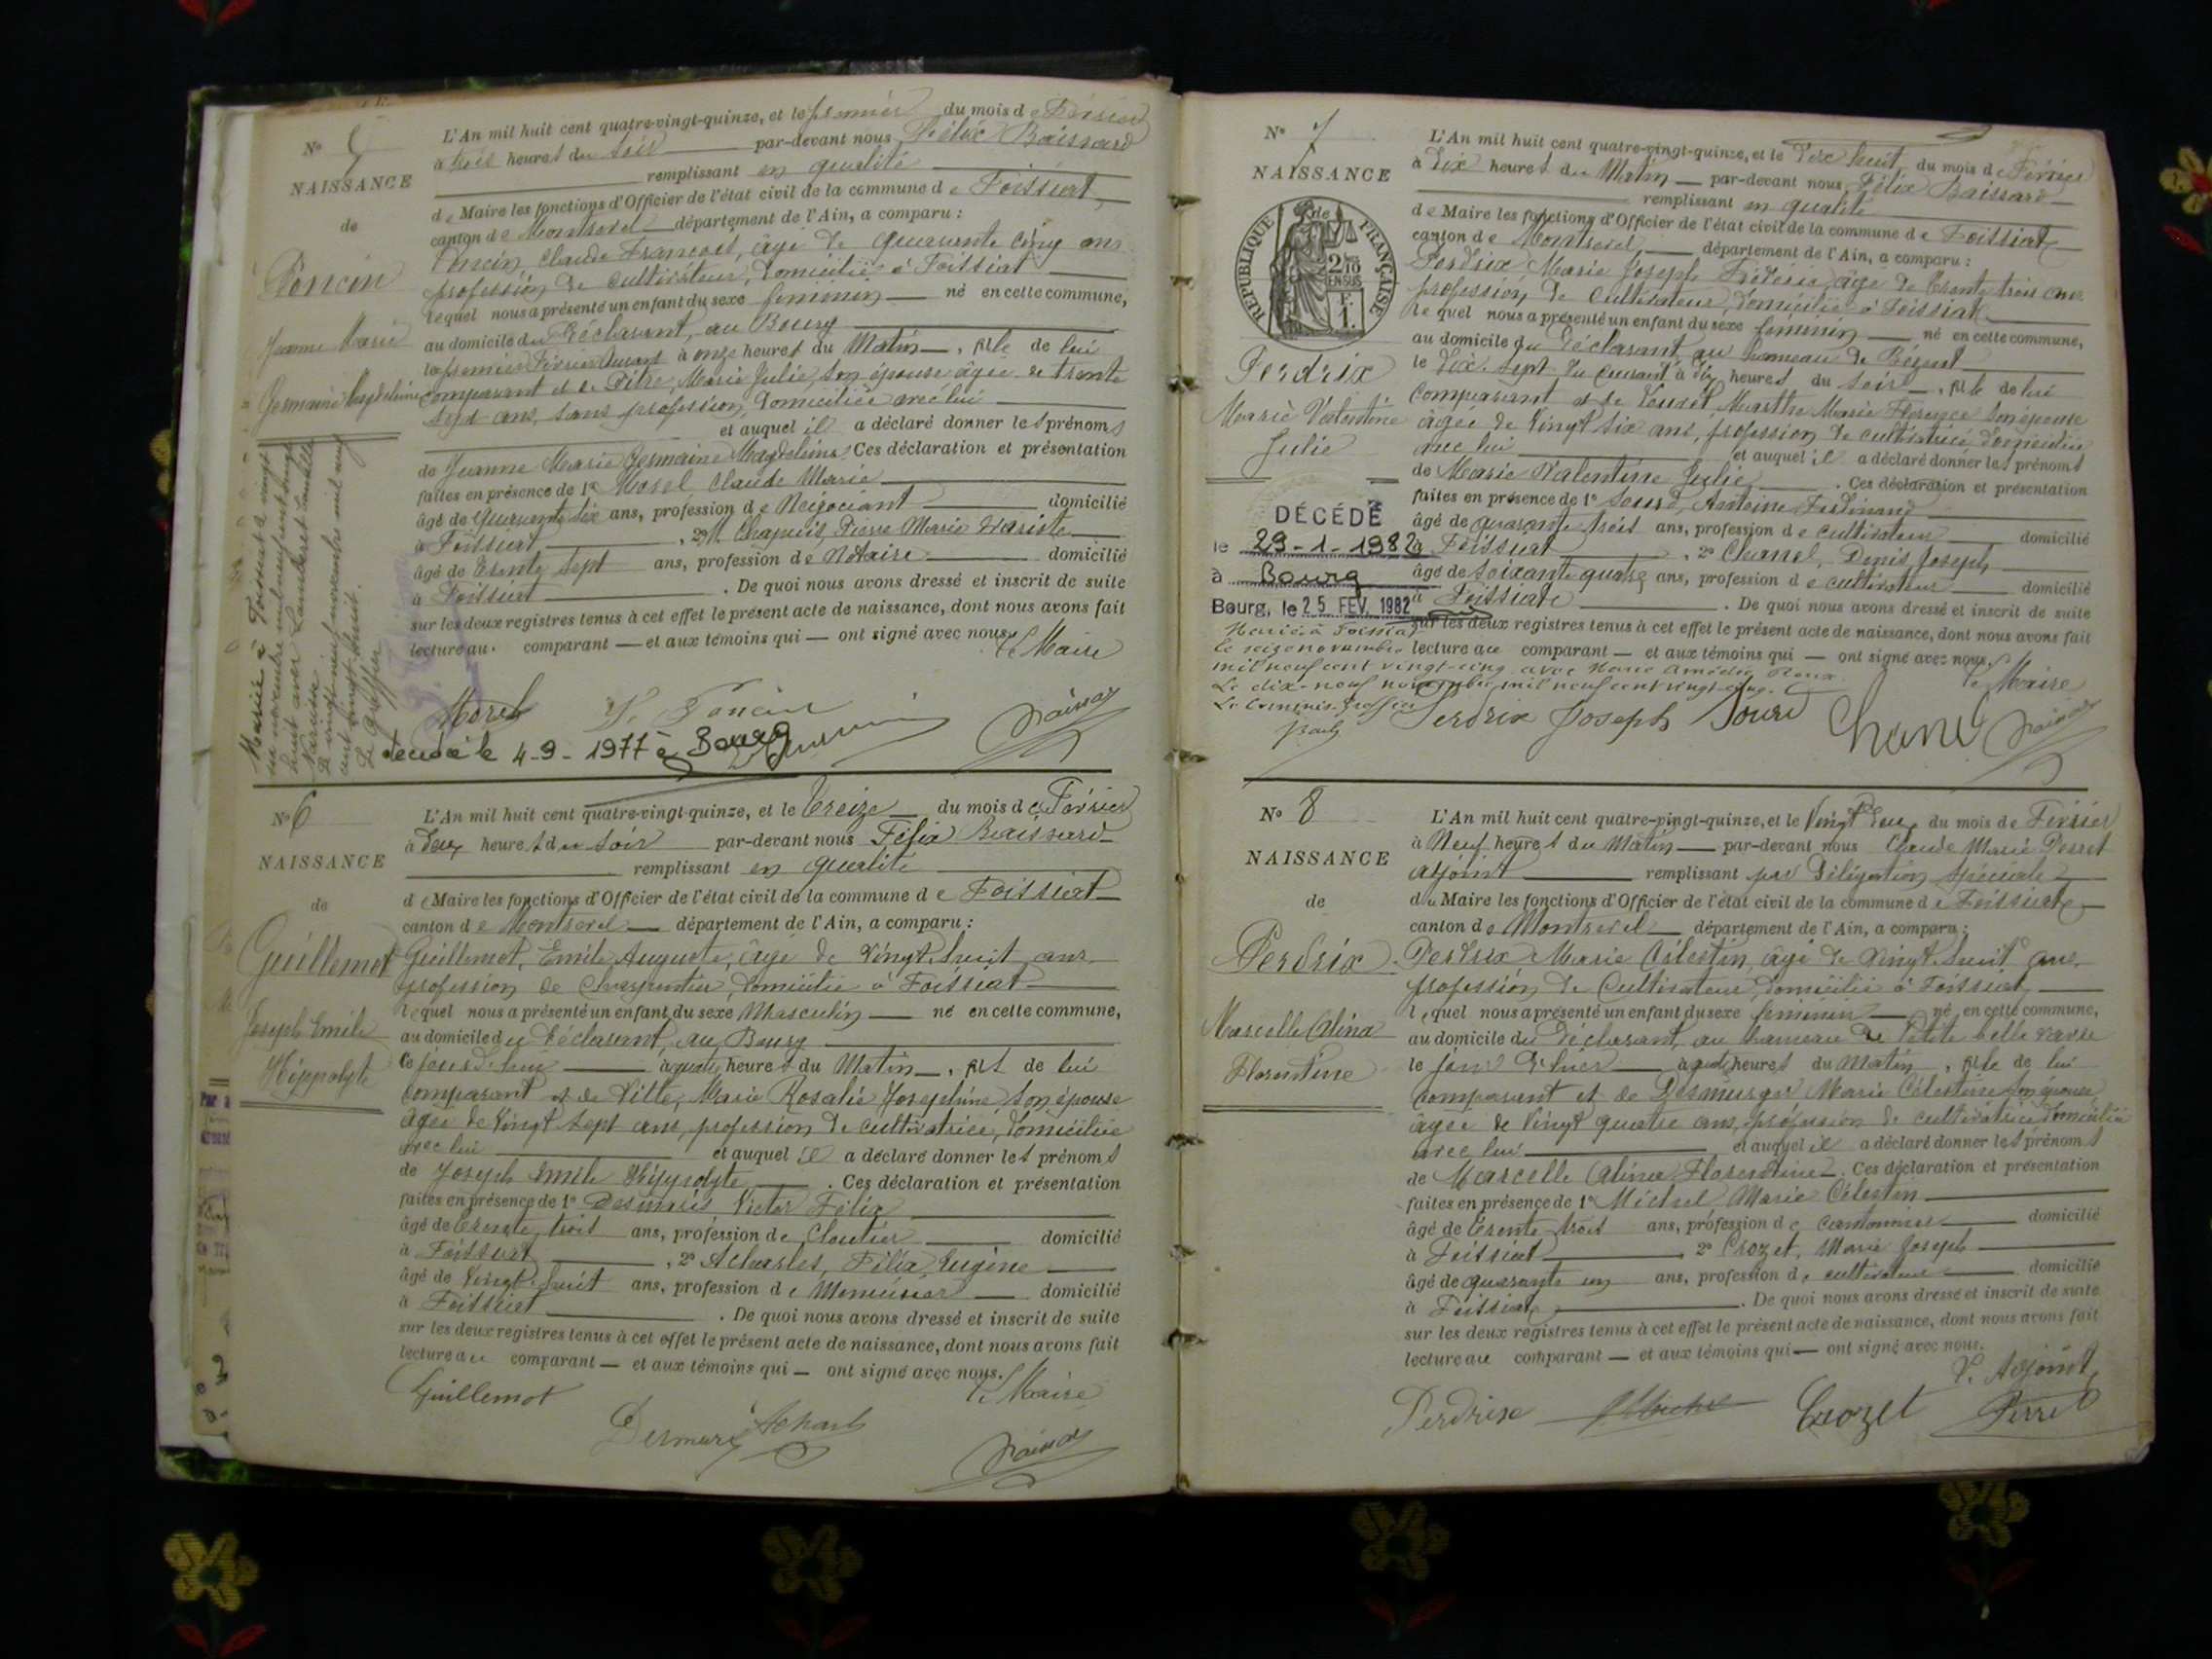 N° 5
NAISSANCE
de
Poncin
Jeanne Marie
Germaine Magdeleine
L'An mil huit cent quatre-vingt-quinze, et le premier du mois de Février
à trois heures du soir par-devant nous Félix Boissard
remplissant en qualité
de Maire les fonctions d'Officier de l'état civil de la commune de Foissiat,
canton de Montrevel département de l'Ain, a comparu :
Poncin Claude François, âgé de quarante cinq ans
profession de cultivateur, domicilié à Foissiat
lequel nous a présenté un enfant du sexe féminin né en cette commune,
au domicile du Déclarant, au Bourg
le premier Février courant à onze heures du Matin, fille de lui
comparant et de Pitre, Marie Julie, son épouse âgée de trente
sept ans, sans profession, domiciliée avec lui
et auquel il a déclaré donner les prénoms
de Jeanne Marie Germaine Magdeleine. Ces déclaration et présentation
faites en présence de 1° Morel Claude Marie
âgé de quarante six ans, profession de Négociant domicilié
à Foissiat, 2° M. Chapuis, Pierre Marie Evariste
âgé de trente sept ans, profession de Notaire domicilié
à Foissiat. De quoi nous avons dressé et inscrit de suite
sur les deux registres tenus à cet effet le présent acte de naissance, dont nous avons fait
lecture au comparant — et aux témoins qui — ont signé avec nous. Le Maire
Morel Poncin
décédée le 4-9-1977 à Bourg
N° 6
NAISSANCE
de
Guillemot
Joseph Emile
Hippolyte
L'An mil huit cent quatre-vingt-quinze, et le treize du mois de Février
à deux heures du soir par-devant nous Félix Boissard
remplissant en qualité
de Maire les fonctions d'Officier de l'état civil de la commune de Foissiat
canton de Montrevel département de l'Ain, a comparu :
Guillemot, Emile Auguste, âgé de vingt huit ans
profession de Charpentier, domicilié à Foissiat
lequel nous a présenté un enfant du sexe Masculin né en cette commune,
au domicile du Déclarant, au Bourg
ce jourd'hui à quatre heures du Matin, fils de lui
comparant et de Pitte, Marie Rosalie Joséphine, son épouse
âgée de vingt sept ans, profession de cultivatrice, domiciliée
avec lui et auquel il a déclaré donner les prénoms
de Joseph Emile Hippolyte. Ces déclaration et présentation
faites en présence de 1° Desmaris Victor Félix
âgé de trente trois ans, profession de Cloutier domicilié
à Foissiat, 2° Acharles, Félix, Eugène
âgé de vingt huit ans, profession de Menuisier domicilié
à Foissiat. De quoi nous avons dressé et inscrit de suite
sur les deux registres tenus à cet effet le présent acte de naissance, dont nous avons fait
lecture au comparant — et aux témoins qui — ont signé avec nous.
Guillemot Le Maire
N° 7
NAISSANCE
de
RÉPUBLIQUE FRANÇAISE
2/10 EN SUS
Perdrix
Marie Valentine
Julie
L'An mil huit cent quatre-vingt-quinze, et le dix huit du mois de Février
à dix heures du Matin par-devant nous Félix Boissard
remplissant en qualité
de Maire les fonctions d'Officier de l'état civil de la commune de Foissiat
canton de Montrevel, département de l'Ain, a comparu :
Perdrix Marie Joseph Frédéric, âgé de trente trois ans
profession de Cultivateur, domicilié à Foissiat
lequel nous a présenté un enfant du sexe féminin né en cette commune,
au domicile du déclarant, au hameau de
le dix sept du courant à dix heures du soir, fille de lui
comparant et de Marthe Marie Florence son épouse
âgée de vingt six ans, profession de cultivatrice domiciliée
avec lui et auquel il a déclaré donner les prénoms
de Marie Valentine Julie. Ces déclaration et présentation
faites en présence de 1° Sourd, Antoine Ferdinand
âgé de quarante trois ans, profession de cultivateur domicilié
à Foissiat, 2° Chanel, Denis Joseph
âgé de soixante quatre ans, profession de cultivateur domicilié
à Foissiat. De quoi nous avons dressé et inscrit de suite
sur les deux registres tenus à cet effet le présent acte de naissance, dont nous avons fait
lecture au comparant — et aux témoins qui — ont signé avec nous.
Le Maire
DÉCÉDÉ
le 29-1-1982
à Bourg
Bourg, le 25 FEV. 1982
Mariée à Foissiat
le seize novembre
mil neuf cent vingt-cinq avec Marie Amédée Roux
Le dix-neuf novembre mil neuf cent vingt-cinq.
Le Commis-Greffier
Perdrix Joseph Sourd Chanel
N° 8
NAISSANCE
de
Perdrix
Marcelle Alina
Florentine
L'An mil huit cent quatre-vingt-quinze, et le vingt deux du mois de Février
à Neuf heures du Matin par-devant nous Claude Marie Perret
adjoint remplissant par Délégation spéciale
du Maire les fonctions d'Officier de l'état civil de la commune de Foissiat
canton de Montrevel département de l'Ain, a comparu :
Perdrix Marie Célestin, âgé de vingt huit ans
profession de Cultivateur, domicilié à Foissiat,
lequel nous a présenté un enfant du sexe féminin né en cette commune,
au domicile du Déclarant, au hameau de Petite belle
le jour d'hier à heures du Matin, fille de lui
comparant et de Desmurger Marie Célestine son épouse
âgée de vingt quatre ans, profession de cultivatrice domiciliée
avec lui et auquel il a déclaré donner les prénoms
de Marcelle Alina Florentine. Ces déclaration et présentation
faites en présence de 1° Michel Marie Célestin
âgé de trente trois ans, profession de cantonnier domicilié
à Foissiat 2° Crozet, Marie Joseph
âgé de quarante un ans, profession de cultivateur domicilié
à Foissiat. De quoi nous avons dressé et inscrit de suite
sur les deux registres tenus à cet effet le présent acte de naissance, dont nous avons fait
lecture au comparant — et aux témoins qui — ont signé avec nous.
L'Adjoint,
Perdrix Michel Crozet Perret